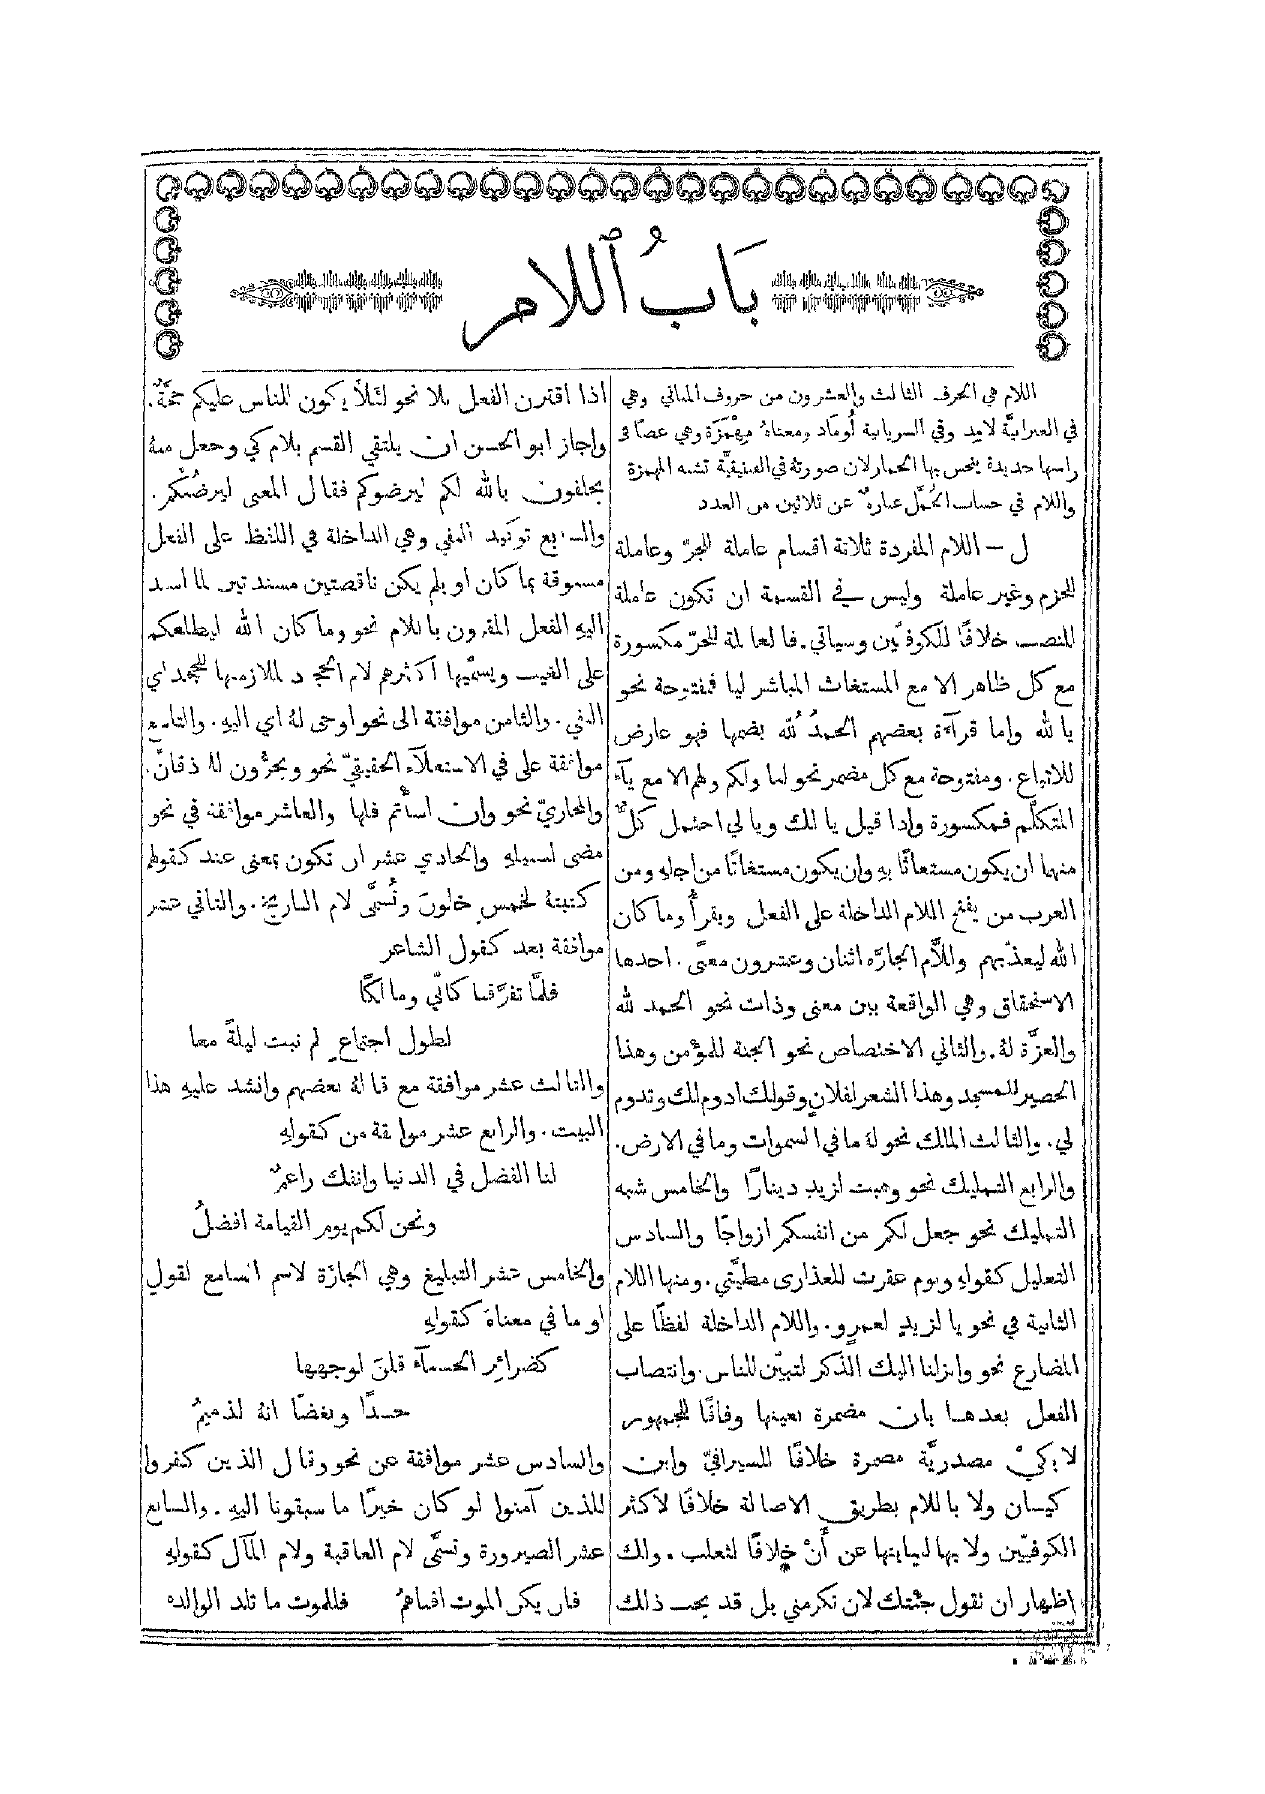 بَابُ ٱللام
اللام هي الحرف الثالث والعشرون من حروف المباني وهي
في العبرانيَّة لامِد وفي السريانية أُومَاد ومعناهُ مِهْمَزَة وهي عصًا في
راسها حديدة ينخس بها الحمار لان صورتهُ في الفينيقيَّة تشبه المهمزة
واللام في حساب الجُمَّل عبارةٌ عن ثلاثين من العدد
ل – اللام المفردة ثلاثة اقسام عاملة للجرّ وعاملة
للجزم وغير عاملة وليس في القسمة ان تكون عاملة
للنصب خلافًا للكوفيّين وسياتي. فالعاملة للجرّ مكسورة
مع كل ظاهر الا مع المستغاث المباشر ليا فمفتوحة نحو
يا لله واما قرآءة بعضهم الحمدُ لُله بضمها فهو عارض
للاتباع. ومفتوحة مع كل مضمر نحو لنا ولكم ولهم الا مع يآء
المتكلّم فمكسورة واذا قيل يا لك ويا لي احتمل كلٌّ
منهما ان يكون مستغاثًا بهِ وان يكون مستغاثًا من اجلهِ ومن
العرب من يفتح اللام الداخلة على الفعل ويقرأُ وما كان
الله ليعذّبهم واللَّام الجارَّة اثنان وعشرون معنًى. احدها
الاستحقاق وهي الواقعة بين معنى وذات نحو الحمد لله
والعزَّة لهُ. والثاني الاختصاص نحو الجنة للمؤمن وهذا
الحصير للمسجد وهذا الشعر لفلانٍ وقولك ادوم لك وتدوم
لي. والثالث الملك نحو لهُ ما في السموات وما في الارض.
والرابع التمليك نحو وهبت لزيدٍ دينارًا والخامس شبه
التمليك نحو جعل لكم من انفسكم ازواجًا والسادس
التعليل كقولهِ ويوم عقرت للعذارى مطيَّتي. ومنها اللام
الثانية في نحو يا لزيدٍ لعمرٍو. واللام الداخلة لفظًا على
المضارع نحو وانزلنا اليك الذكر لتبيّن للناس. وانتصاب
الفعل بعدها بان مضمرة بعينها وفاقًا للجمهور
لا بكيْ مصدريَّة مضمرة خلافًا للسيرافيّ وابن
كيسان ولا باللام بطريق الاصالة خلافًا لاكثر
الكوفيّين ولا بها لنيابتها عن أَنْ خلافًا لثعلب. ولك
اظهار ان تقول جئتك لان تكرمني بل قد يجب ذلك
اذا اقترن الفعل بلا نحو لئلَّا يكون للناس عليكم حجَّةٌ.
واجاز ابو الحسن ان يلتقي القسم بلام كي وجعل منهُ
يحلفون بالله لكم ليرضوكم فقال المعنى ليرضُنَّكم.
والسابع توكيد النفي وهي الداخلة في اللفظ على الفعل
مسبوقة بما كان او بلم يكن ناقصتين مسندتين لما اسند
اليهِ الفعل المقرون باللام نحو وما كان الله ليطلعكم
على الغيب ويسمّيها اكثرهم لام الجحود لملازمتها للجحد اي
النفي. والثامن موافقة الى نحو اوحى لهُ اي اليهِ. والتاسع
موافقة على في الاستعلآء الحقيقيّ نحو ويخرُّون للاذقان.
والمجازيّ نحو وان اسأتم فلها والعاشر موافقة في نحو
مضى لسبيلهِ والحادي عشر ان تكون بمعنى عند كقولهم
كتبتهُ لخمسٍ خلونَ وتُسمَّى لام التاريخ. والثاني عشر
موافقة بعد كقول الشاعر
فلمَّا تفرَّقنا كانّي ومالكًا
لطول اجتماعٍ لم نبت ليلةً معا
والثالث عشر موافقة مع قالهُ بعضهم وانشد عليهِ هذا
البيت. والرابع عشر موافقة من كقولهِ
لنا الفضل في الدنيا وانفك راغمٌ
ونحن لكم يوم القيامة افضلُ
والخامس عشر التبليغ وهي الجارَّة لاسم السامع لقولٍ
او ما في معناهُ كقولهِ
كضرائِر الحسنآء قلنَ لوجهها
حسدًا وبغضًا انهُ لذميمُ
والسادس عشر موافقة عن نحو وقال الذين كفروا
للذين آمنوا لو كان خيرًا ما سبقونا اليهِ. والسابع
عشر الصيرورة وتسمَّى لام العاقبة ولام المآل كقولهِ
فان يكن الموت افناهمُ فللموت ما تلد الوالده